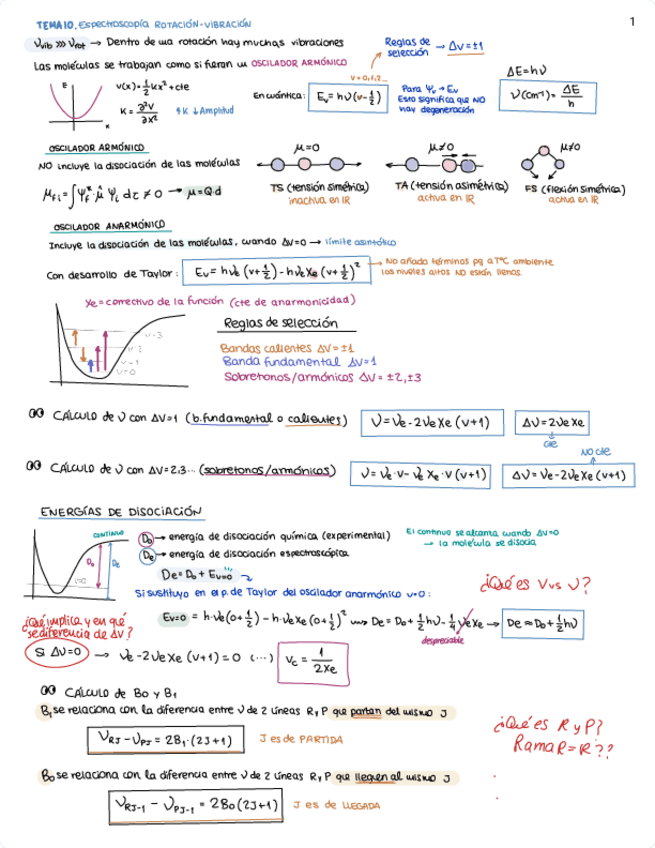 1
TEMA 10. Espectroscopía ROTACIÓN-VIBRACIÓN
ν vib >>> ν rot → Dentro de una rotación hay muchas vibraciones
Reglas de selección → Δv=±1
Las moléculas se trabajan como si fueran un OSCILADOR ARMÓNICO
V(x)=½kx²+cte
K = ∂²V/∂x²
↑K ↓Amplitud
E
x
v=0,1,2...
En cuántica: Ev = hν(v+½)
Para Ψv → Ev
Esto significa que NO
hay degeneración
ΔE=hν
ν(cm⁻¹) = ΔE/h
OSCILADOR ARMÓNICO
NO incluye la disociación de las moléculas
μfi = ∫Ψf* μ̂ Ψi dτ ≠ 0 → μ=Q·d
μ=0
TS (tensión simétrica)
inactiva en IR
μ≠0
TA (tensión asimétrica)
activa en IR
μ≠0
FS (flexión simétrica)
activa en IR
OSCILADOR ANARMÓNICO
Incluye la disociación de las moléculas, cuando Δν=0 → límite asintótico
Con desarrollo de Taylor: Ev = hνe (v+½) - hνe xe (v+½)²
→ No añado términos pq a T°C ambiente
los niveles altos NO están llenos.
xe = correctivo de la función (cte de anarmonicidad)
v=3
v=2
v=1
v=0
Reglas de selección
Bandas calientes Δv=±1
Banda fundamental Δv=1
Sobretonos/armónicos Δv = ±2,±3
CÁLCULO de ν con Δv=1 (b.fundamental o calientes)
ν = νe - 2νe xe (v+1)
Δν = 2νe xe
cte
CÁLCULO de ν con Δv=2,3... (sobretonos/armónicos)
ν = νe·v - νe xe·v (v+1)
NO cte
Δν = νe - 2νe xe (v+1)
ENERGÍAS DE DISOCIACIÓN
CONTINUO
Do
De
v=0
Do → energía de disociación química (experimental)
De → energía de disociación espectroscópica
El continuo se alcanza cuando Δν=0
→ la molécula se disocia
De = Do + Ev=0
¿Qué es V vs ν?
Si sustituyo en el p. de Taylor del oscilador anarmónico v=0:
Ev=0 = h·νe(0+½) - h·νe xe (0+½)² ⇝ De = Do + ½hν - ¼νe xe → De ≈ Do + ½hν
despreciable
¿Qué implica y en qué
se diferencia de Δv?
Si Δν=0 → νe - 2νe xe (v+1) = 0 (...) vc = 1/2xe
CÁLCULO de Bo y B1
B1 se relaciona con la diferencia entre ν de 2 líneas R y P que partan del mismo J
νRJ - νPJ = 2B1·(2J+1)
J es de PARTIDA
¿Qué es R y P?
Rama R = ℝ ??
Bo se relaciona con la diferencia entre ν de 2 líneas R y P que lleguen al mismo J
νRJ-1 - νPJ-1 = 2Bo(2J+1)
J es de LLEGADA